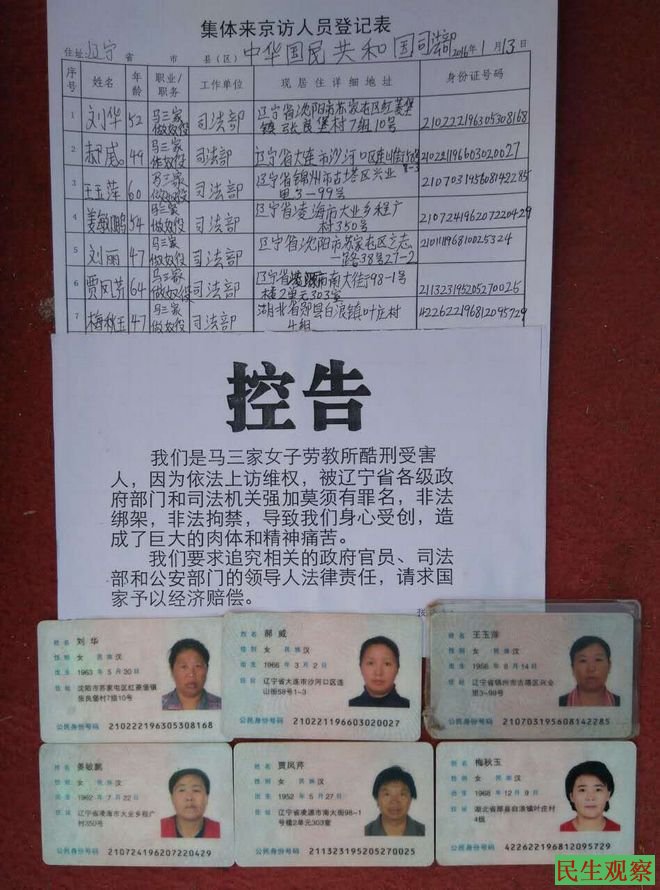 集体来京访人员登记表
住址: 辽宁 省 市 县(区) 中华国民共和国司法部 2016年1月13日
序号 姓名 年龄 职业/职务 工作单位 现居住详细地址 身份证号码
1 刘华 52 马三家做奴役 司法部 辽宁省沈阳市苏家屯区红菱堡镇张良堡村7组10号 210222196305308168
2 郝威 49 马三家做奴役 司法部 辽宁省大连市沙河口区连山街58号1-3 210221196603020027
3 王玉萍 60 马三家做奴役 司法部 辽宁省锦州市古塔区兴业里3-99号 210703195608142285
4 姜敏鹏 54 马三家做奴役 司法部 辽宁省凌海市大业乡程广村350号 210724196207220429
5 刘丽 47 马三家做奴役 司法部 辽宁省沈阳市苏家屯区立志一路38号27-2
6 贾凤芹 64 马三家做奴役 司法部 辽宁省凌源市南大街98-1号楼2单元303室 211323195205270025
7 梅秋玉 47 马三家做奴役 司法部 湖北省郧县白浪镇叶庄村4组 422622196812095729
控告
我们是马三家女子劳教所酷刑受害
人，因为依法上访维权，被辽宁省各级政
府部门和司法机关强加莫须有罪名，非法
绑架，非法拘禁，导致我们身心受创，造
成了巨大的肉体和精神痛苦。
我们要求追究相关的政府官员、司法
部和公安部门的领导人法律责任，请求国
家予以经济赔偿。
姓名 刘华
性别 女 民族 汉
出生 1963 年 5 月 30 日
住址 沈阳市苏家屯区红菱堡镇
张良堡村7组10号
公民身份号码 210222196305308168
姓名 郝威
性别 女 民族 汉
出生 1966 年 3 月 2 日
住址 辽宁省大连市沙河口区连
山街58号1-3
公民身份号码 210221196603020027
姓名 王玉萍
性别 女 民族 汉
出生 1956 年 8 月 14 日
住址 辽宁省锦州市古塔区兴业
里3-99号
公民身份号码 210703195608142285
姓名 姜敏鹏
性别 女 民族 汉
出生 1962 年 7 月 22 日
住址 辽宁省凌海市大业乡程广
村350号
公民身份号码 210724196207220429
姓名 贾凤芹
性别 女 民族 汉
出生 1952 年 5 月 27 日
住址 辽宁省凌源市南大街98-1
号楼2单元303室
公民身份号码 211323195205270025
姓名 梅秋玉
性别 女 民族 汉
出生 1968 年 12 月 9 日
住址 湖北省郧县白浪镇叶庄村
4组
公民身份号码 422622196812095729
民生观察